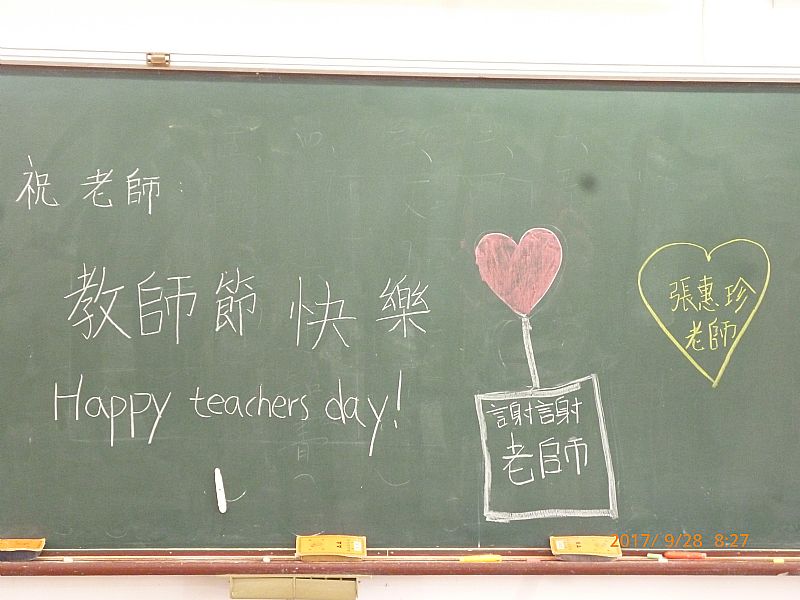 祝 老師：
教師節快樂
Happy teachers day!
謝謝
老師
張惠珍
老師
2017/ 9/28 8:27